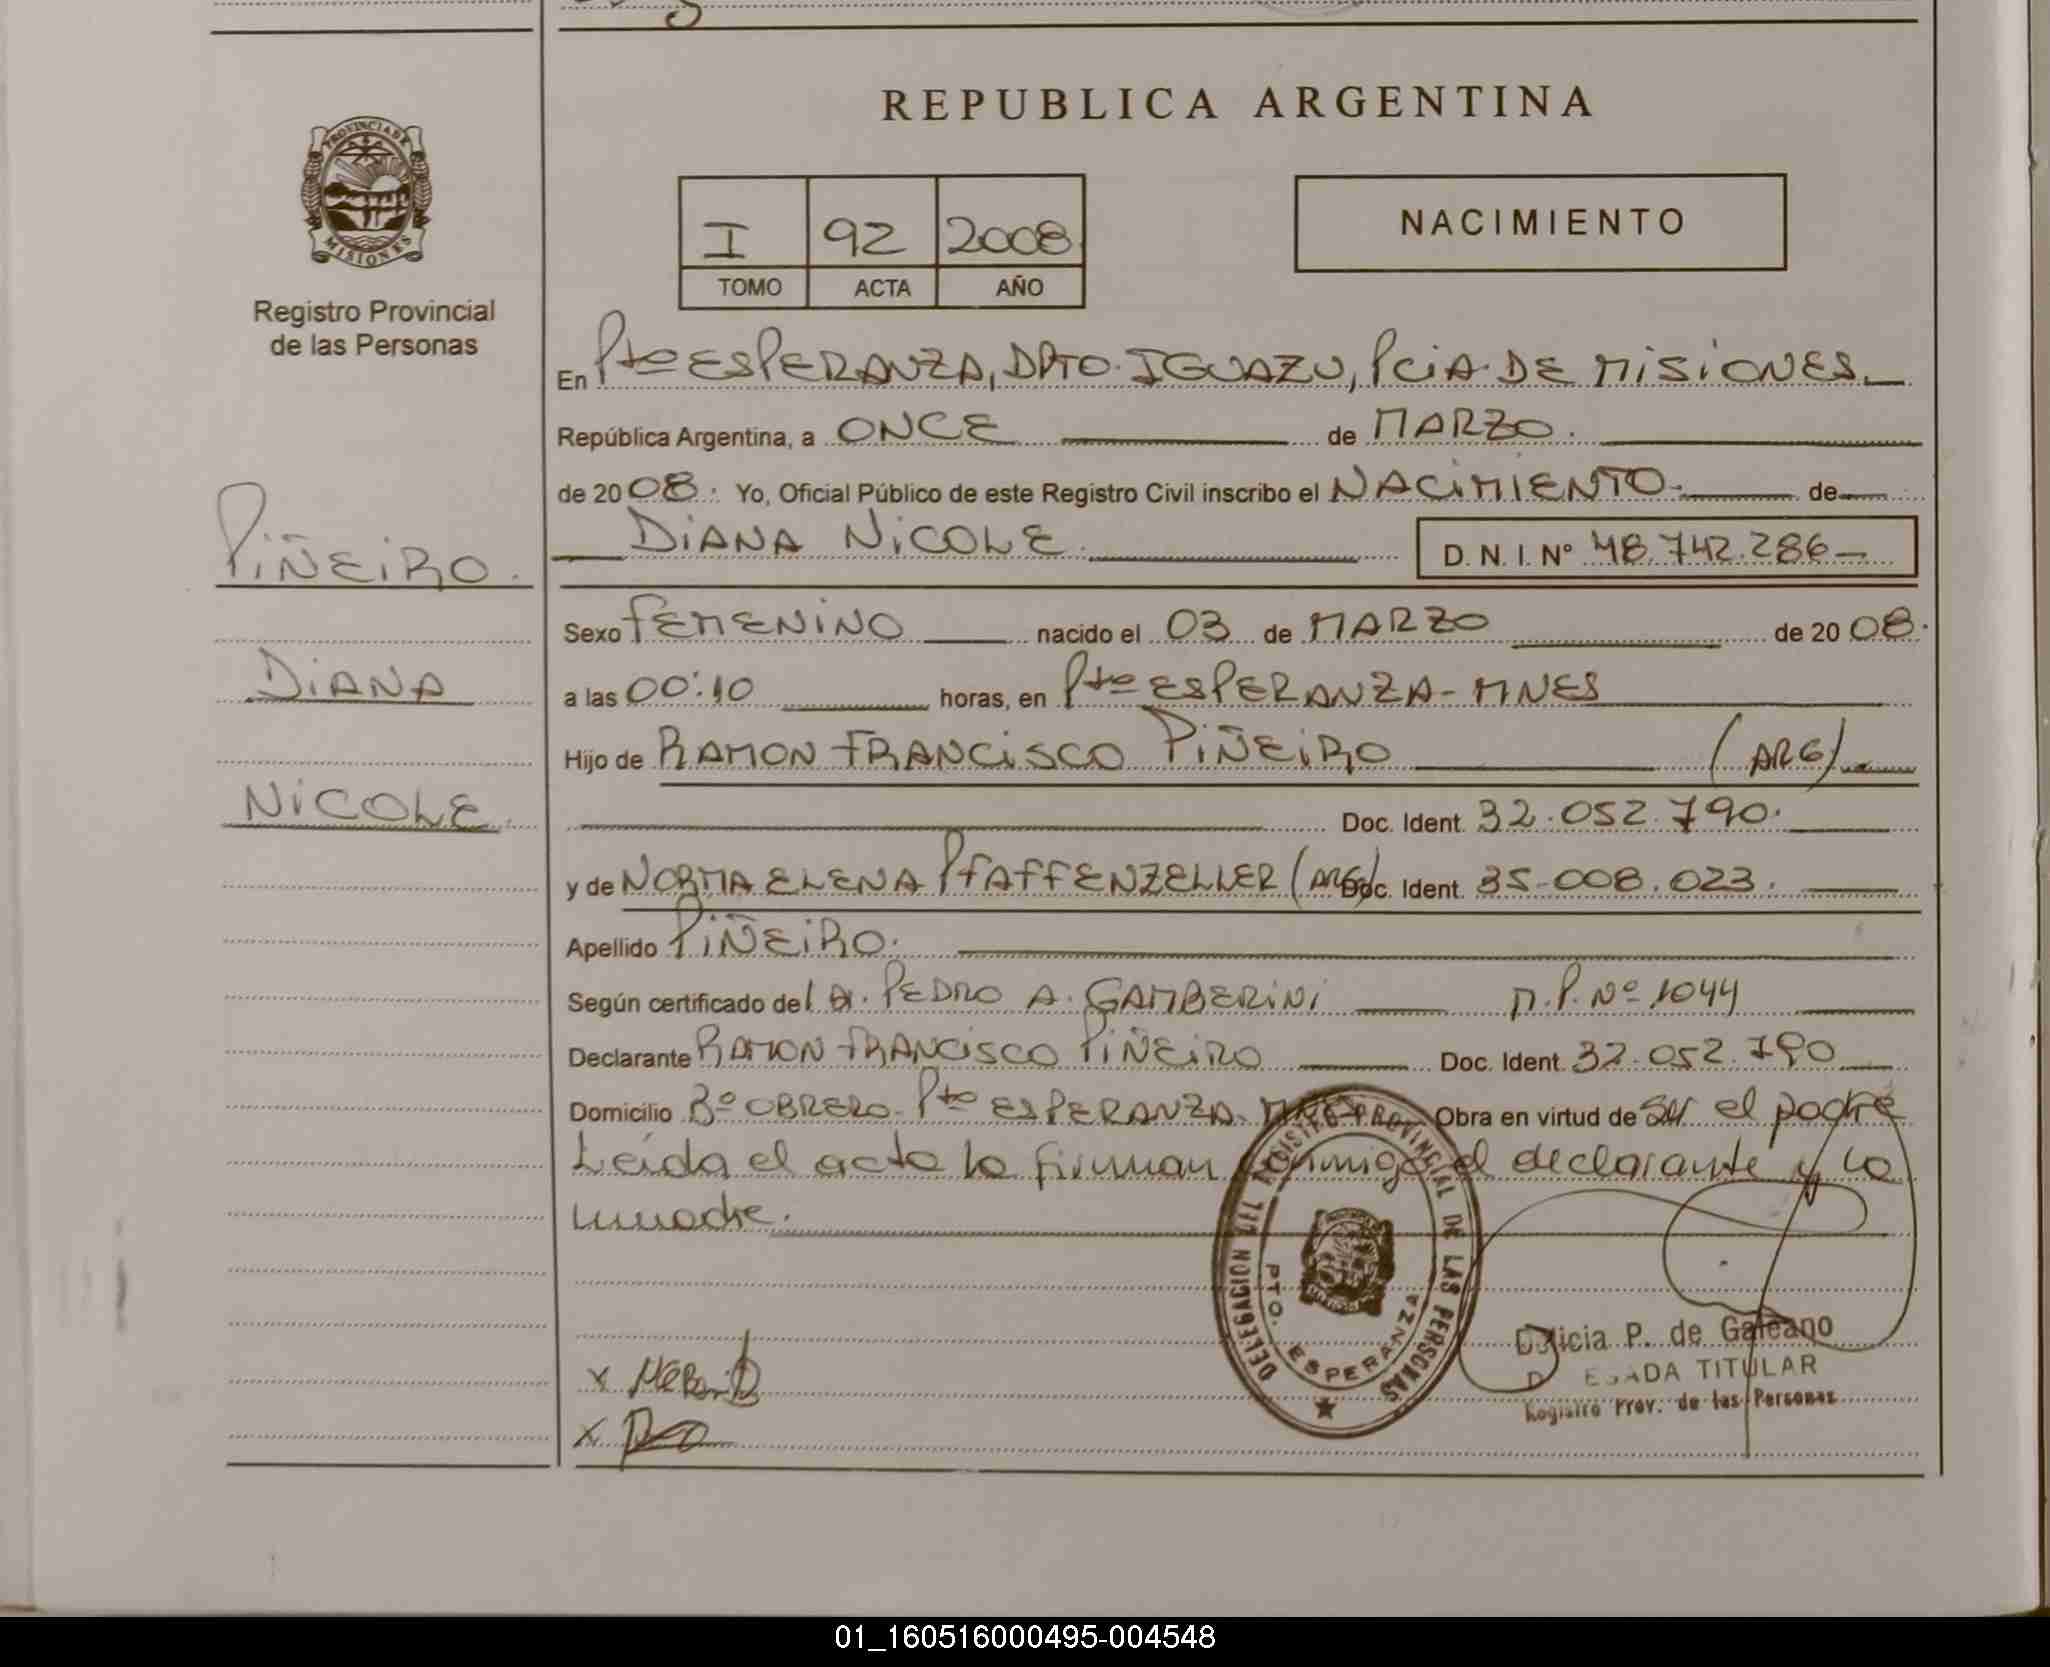 REPUBLICA ARGENTINA
PROVINCIA DE
MISIONES
Registro Provincial
de las Personas
I 92 2008
TOMO ACTA AÑO
NACIMIENTO
En Pto ESPERANZA, DPTO. IGUAZU, PCiA. DE MiSiONES.
República Argentina, a ONCE de MARZO.
de 2008. Yo, Oficial Público de este Registro Civil inscribo el NACiMiENTO. de
DiANA NiCOLE. D. N. I. Nº 48.742.286
PiÑEiRO.
DiANA
NiCOLE.
Sexo FEMENiNO nacido el 03 de MARZO de 2008.
a las 00:10 horas, en Pto ESPERANZA - MNES
Hijo de RAMON FRANCiSCO PiÑEiRO (ARG)
Doc. Ident. 32.052.790.
y de NORMA ELENA PFAFFENZELLER (ARG) Doc. Ident. 35.008.023.
Apellido PiÑEiRO.
Según certificado del Dr. PEDRO A. GAMBERiNi M.P. Nº 1044
Declarante RAMON FRANCiSCO PiÑEiRO Doc. Ident. 32.052.790
Domicilio Bº OBRERO - Pto ESPERANZA - MNES Obra en virtud de ser el padre
Leída el acta la firman conmigo el declarante y la
madre.
DELEGACION DEL REGISTRO PROVINCIAL DE LAS PERSONAS
PTO. ESPERANZA
P. de Galeano
TITULAR
Registro Prov. de las Personas
x
x
01_160516000495-004548